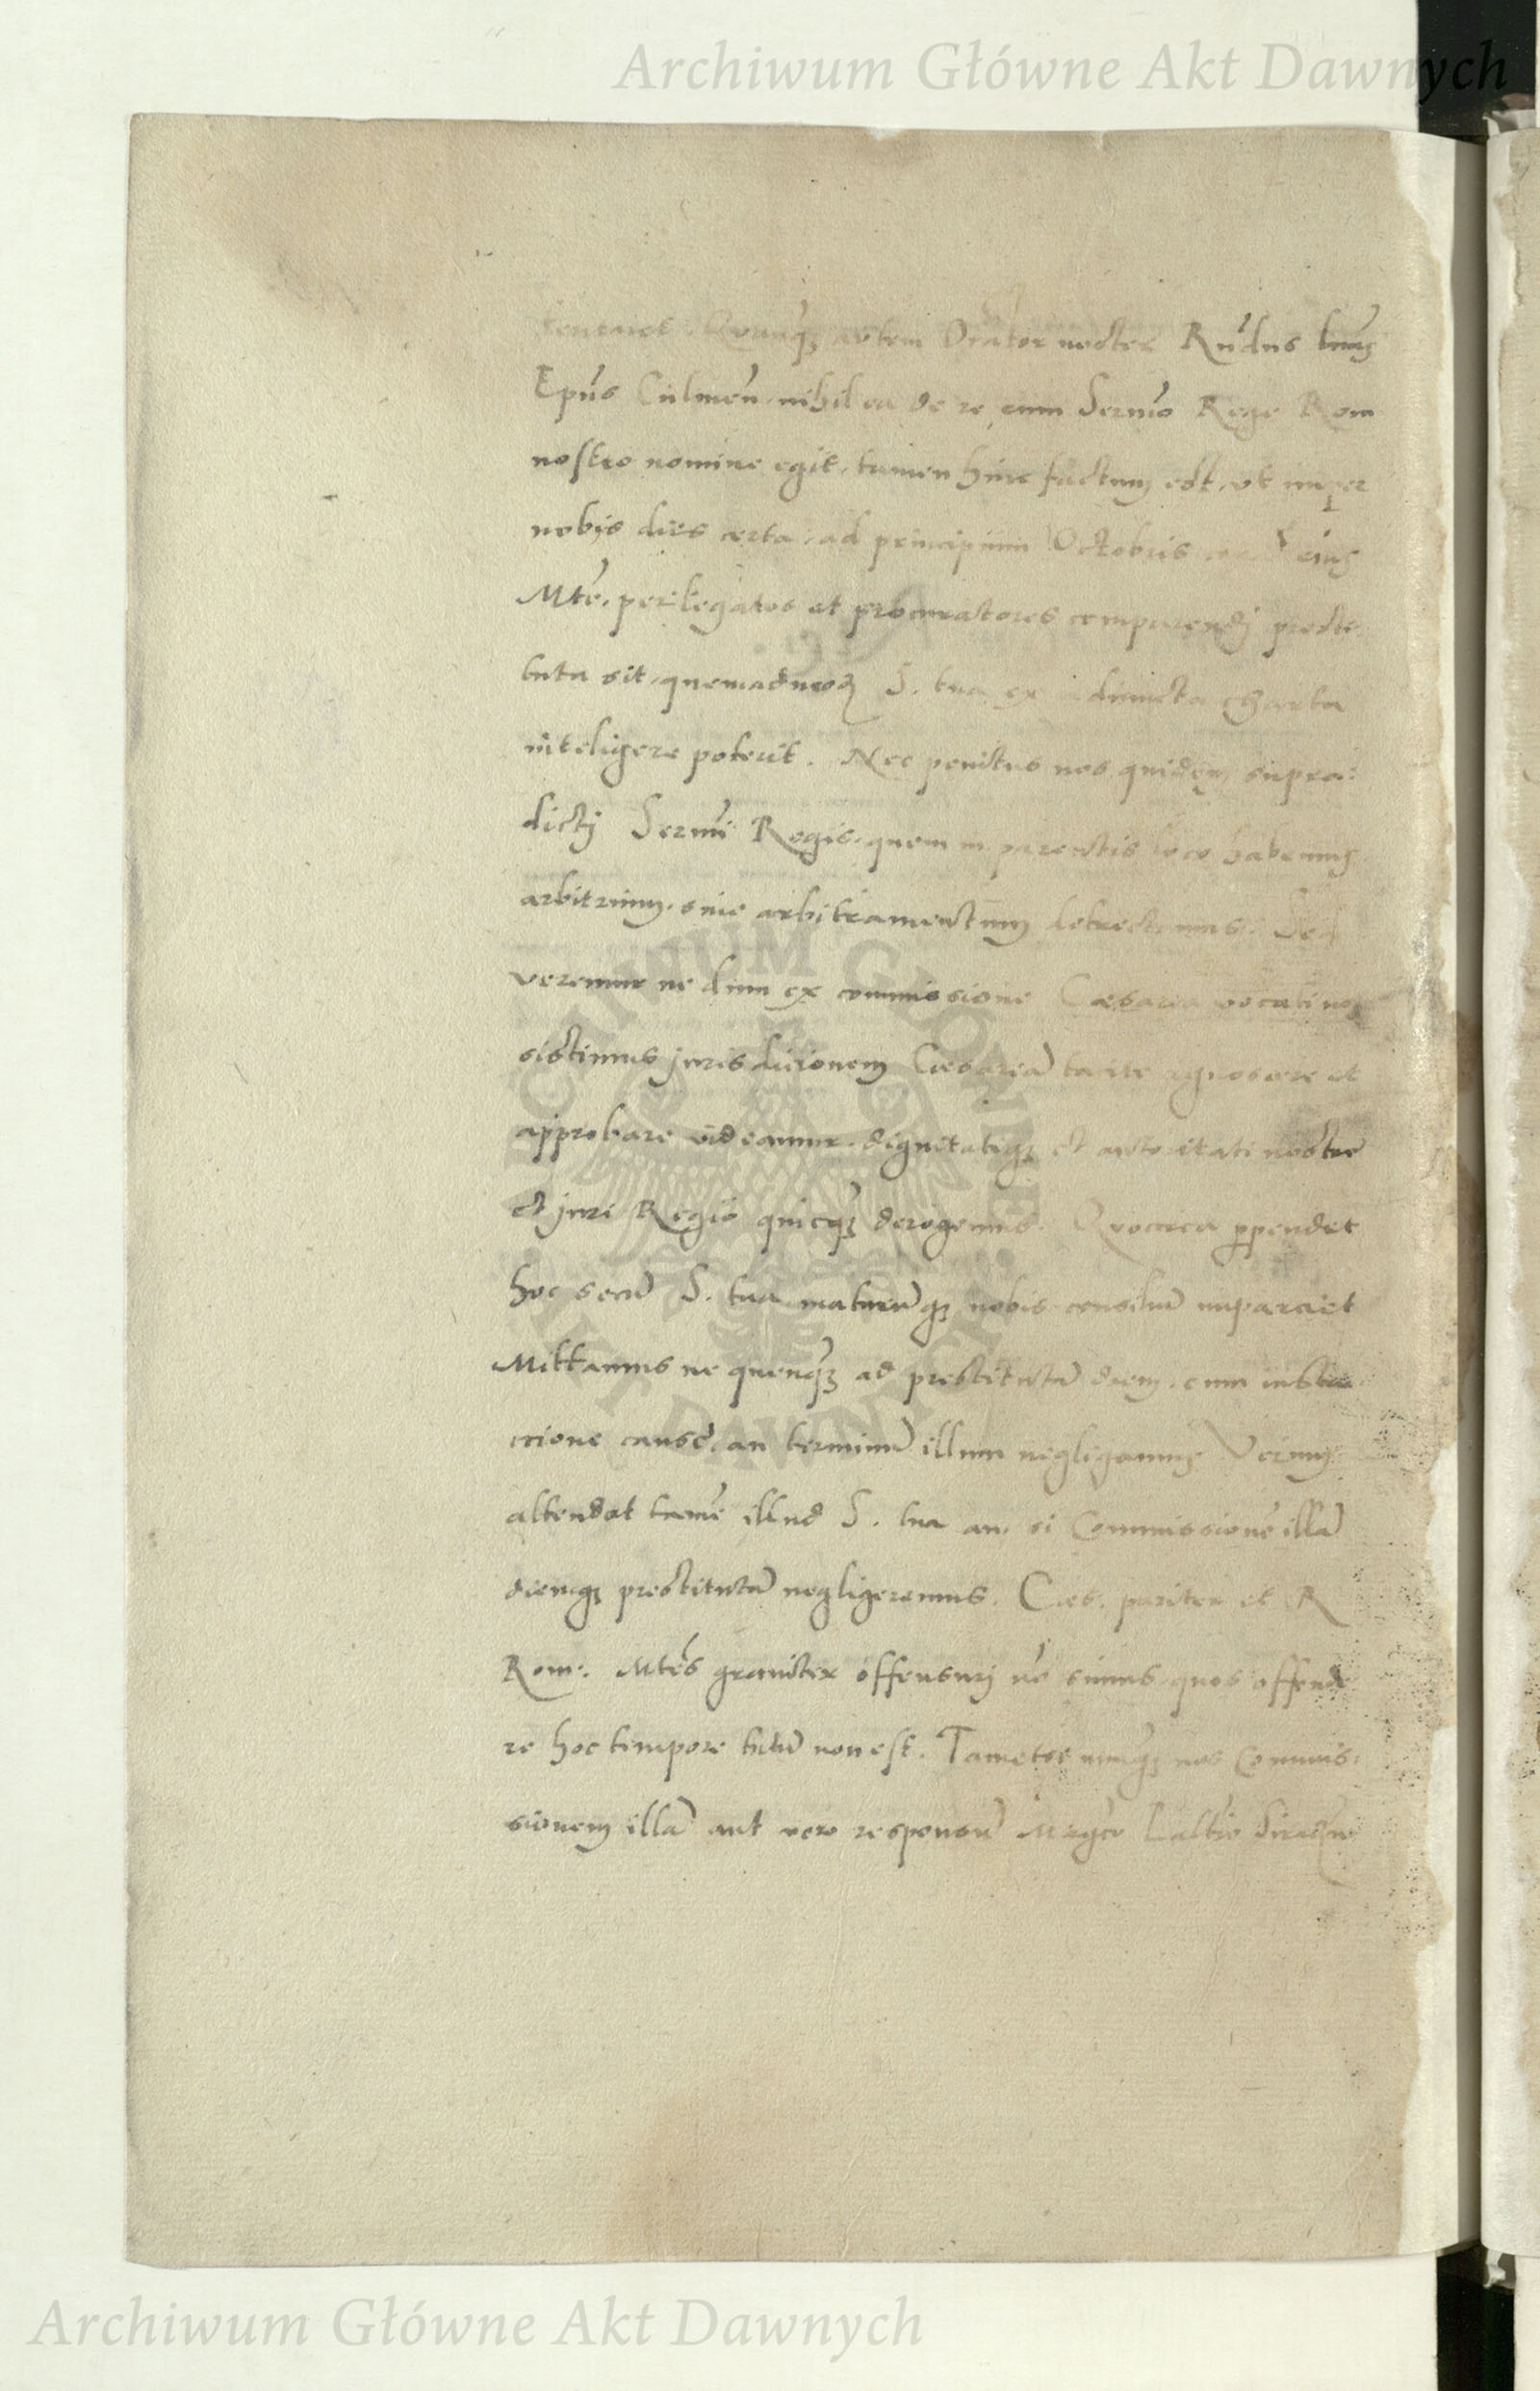 Archiwum Główne Akt Dawnych
autem Orator noster Rńdus
Epūs Culmeñ. nihil ea de re cum Sermo Rege Rom
nostro nomine egit, tamen hinc factum est, ut
nobis dies certa, ad principium Octobris eius
Mte. per legatos et procuratores comparendj presti
tuta sit, quemadmodm S. tua ex charta
inteligere poterit. Nec penitus nos quidem supra:
dictj Sermi Regis, quem in parentis loco habemus
arbitrium, siue arbitramentum detrectamus. Sed
veremur ne dum ex commissione Cæsarea vocati nos
sistimus jurisdicionem Cæsareā tacite agnoscere et
approbare videamur, dignitatiqȝ et autoritati nostre
et juri Regio quicqȝ derogemus. Quocirca ppendet
hoc secū S. tua maturūqȝ nobis consiliū impartiet
Mittamus ne quenqȝ ad prestitutā diem, cum instru
ccione cause, an terminū illum negligamus Verum
attendat tamē illud S. tua an, si Commissionē illā
diemqȝ prestitutā negligeremus. Cæs. pariter et R
Rom: Mtes grauiter offensurj nē simus quos offende
re hoc tempore tutū non est. Tametsi nunqȝ nos Commis:
sionem illā aut vero responsū
Archiwum Główne Akt Dawnych